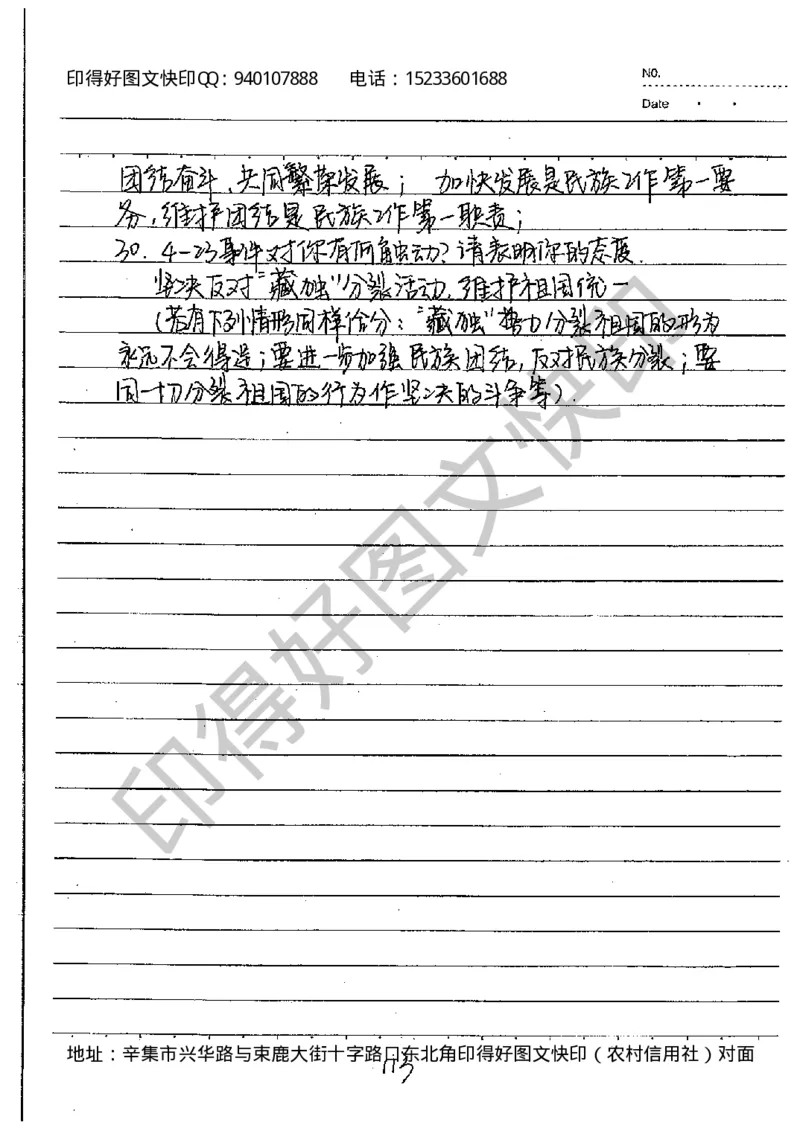 印得好图文快印QQ：940107888 电话：15233601688
NO.
Date
团结奋斗、共同繁荣发展； 加快发展是民族工作第一要
务，维护团结是民族工作第一职责；
30. 4-23事件对你有何触动？请表明你的态度.
坚决反对“藏独”分裂活动，维护祖国统一
（若有下列情形同样给分：“藏独”势力分裂祖国的行为
永远不会得逞；要进一步加强民族团结，反对民族分裂；要
同一切分裂祖国的行为作坚决的斗争等）.
印得好图文快印
地址：辛集市兴华路与束鹿大街十字路口东北角印得好图文快印（农村信用社）对面
113